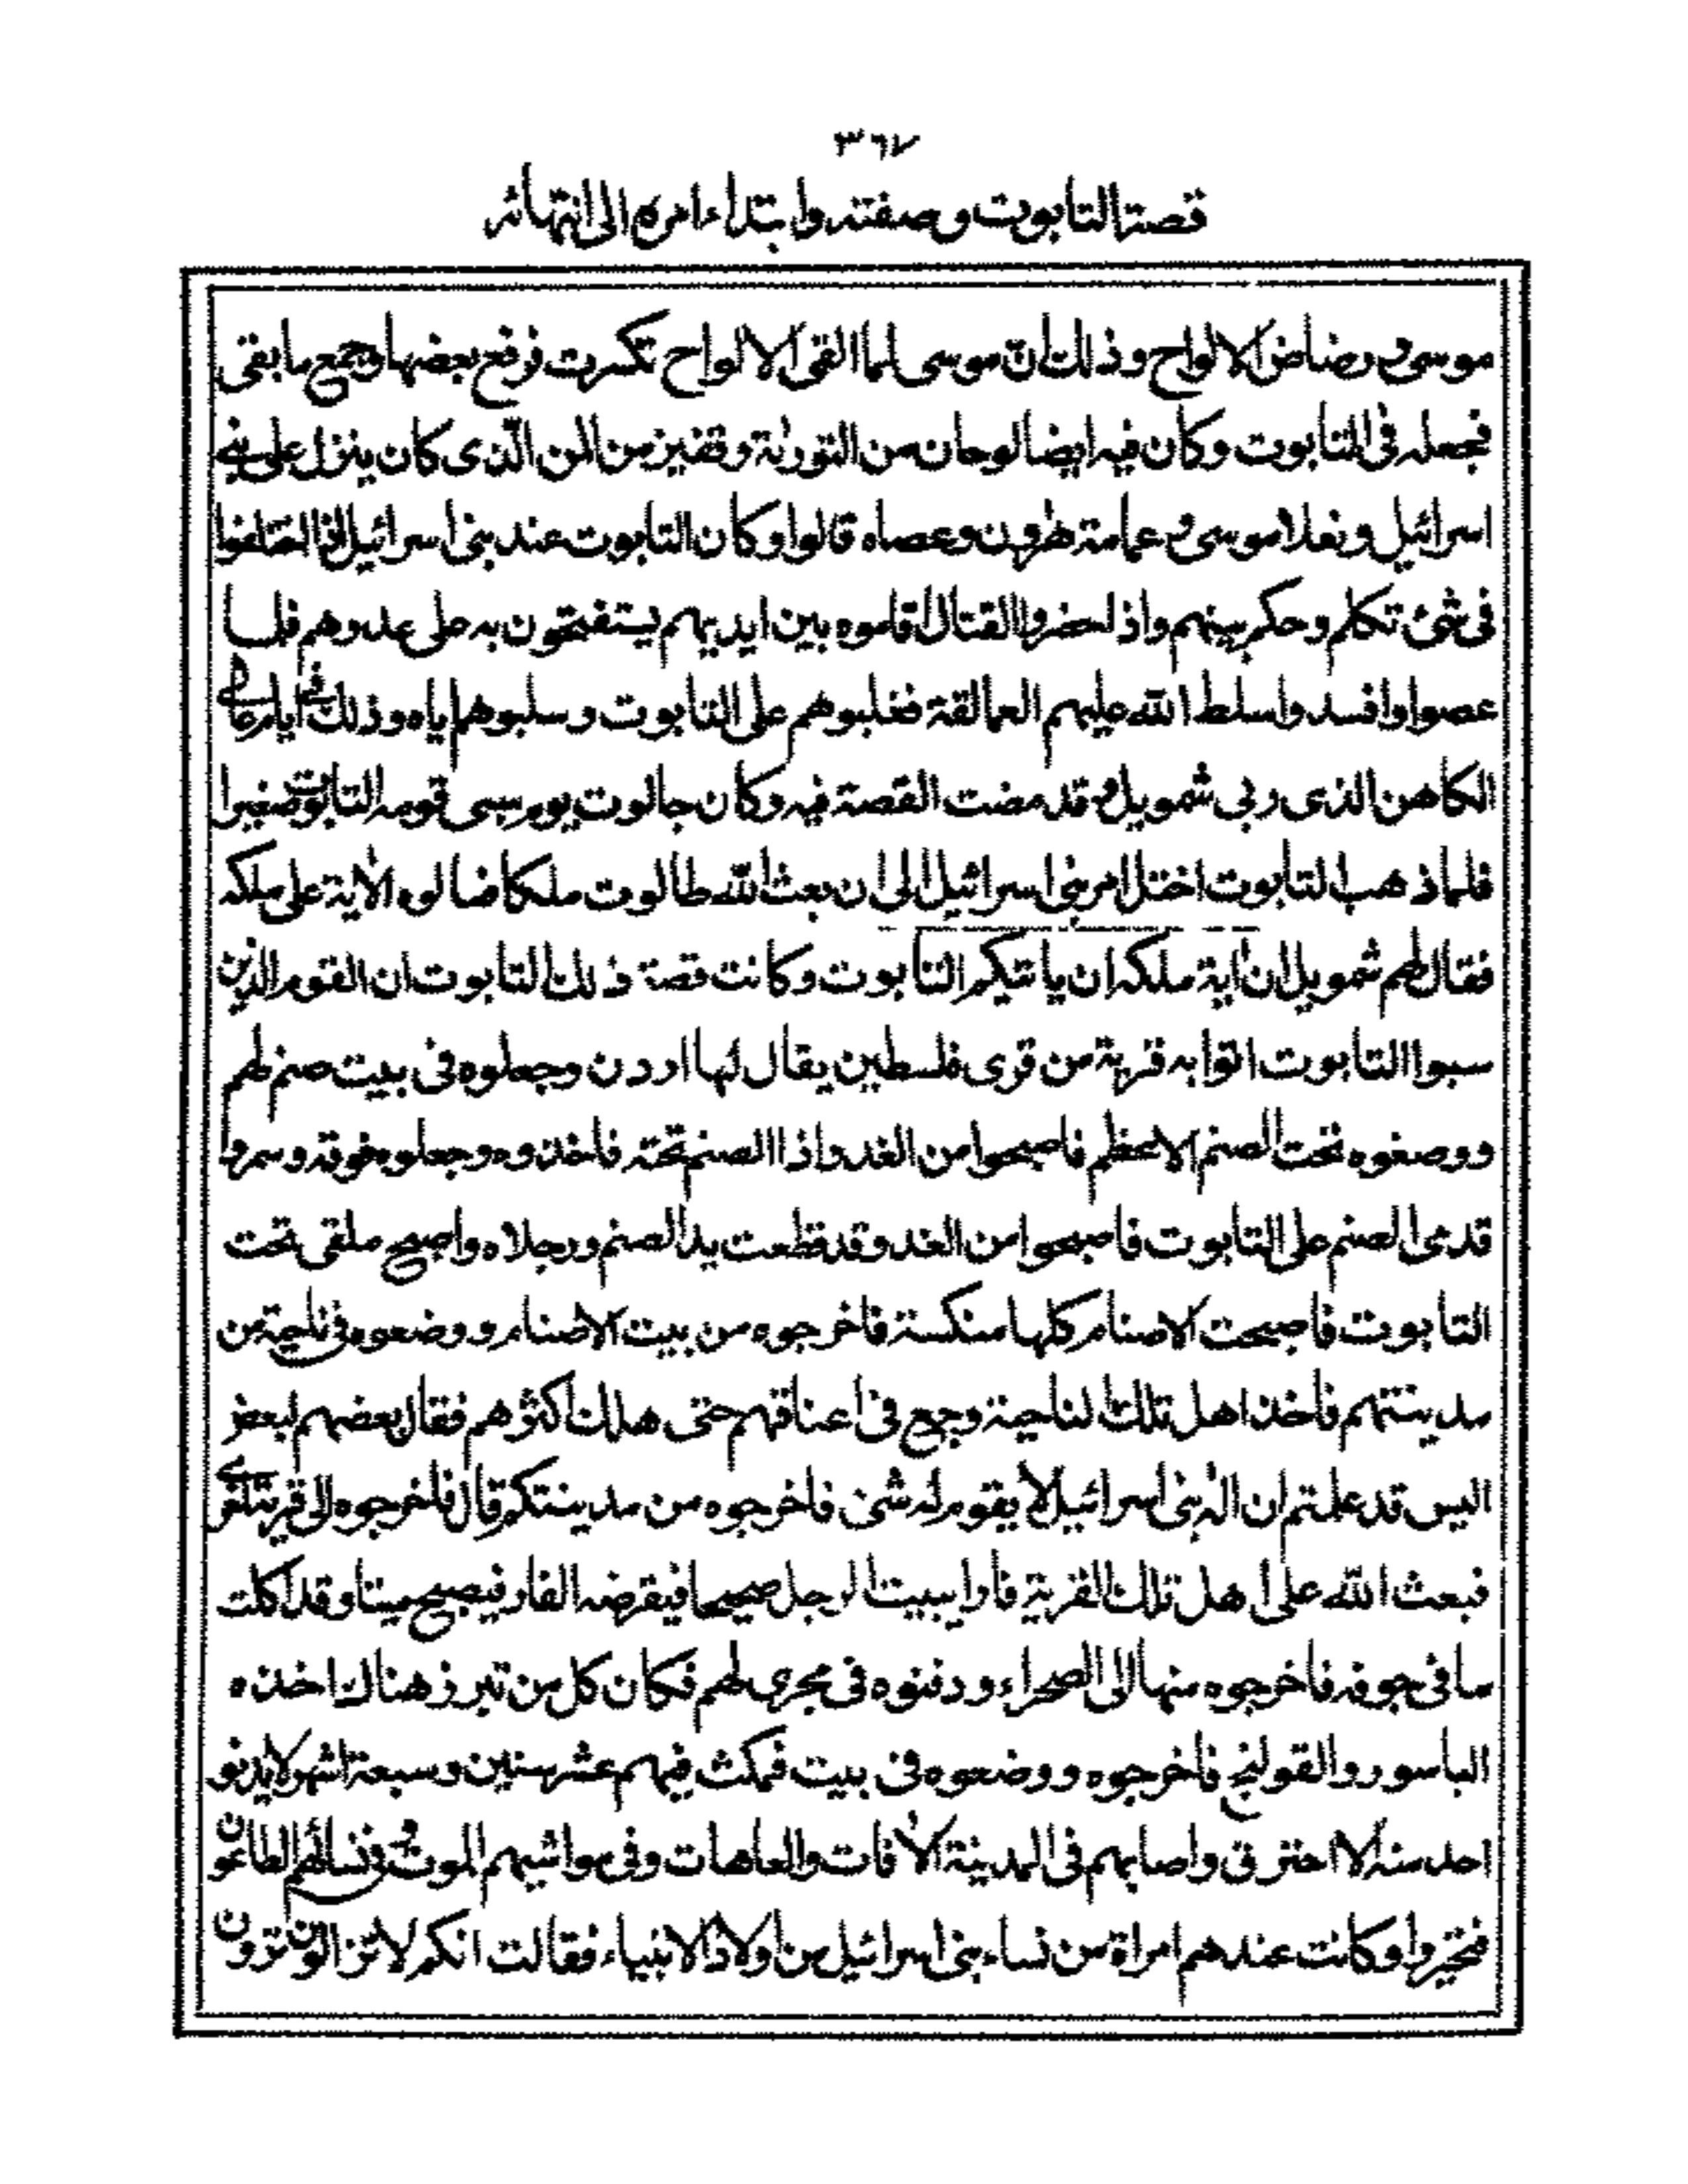 ٣٦٧
قصة التابوت وصفته وابتداء امره الى انتهائه
موسى ورضاض الالواح وذلك ان موسى لما القى الالواح تكسرت فرفع بعضها وجمع ما بقى
فجعله فى التابوت وكان فيه ايضا لوحان من التورٰىة وقفيز من المن الّذى كان ينزل على بنى
اسرائيل ونعلا موسى وعمامة هٰرون وعصاه قالوا وكان التابوت عند بنى اسرائيل اذا اختلفوا
فى شئ تكلم وحكم بينهم واذا حضروا القتال اقاموه بين ايديهم يستفتحون به على عدوهم فلما
عصوا وافسدوا سلط الله عليهم العمالقة فغلبوهم على التابوت وسلبوهم اياه وذلك فى ايام عالى
الكاهن الذى ربى شمويل وقد مضت القصة فيه وكان جالوت يوم سبى قومه التابوت صغيرا
فلما ذهب التابوت اختل امر بنى اسرائيل الى ان بعث الله طالوت ملكا فسالوه الاٰية على ملكه
فقال لهم شمويل ان اٰية ملكه ان ياتيكم التابوت وكانت قصة ذلك التابوت ان القوم الذين
سبوا التابوت اتوا به قرية من قرى فلسطين يقال لها اردن وجعلوه فى بيت صنم لهم
ووضعوه تحت الصنم الاعظم فاصبحوا من الغد واذا الصنم تحته فاخذوه وجعلوه فوقه وسمروا
قدمى الصنم على التابوت فاصبحوا من الغد وقد قطعت يدا الصنم ورجلاه واصبح ملقى تحت
التابوت فاصبحت الاصنام كلها منكسة فاخرجوه من بيت الاصنام ووضعوه فى ناحية من
مدينتهم فاخذ اهل تلك الناحية وجع فى اعناقهم حتى هلك اكثرهم فقال بعضهم لبعض
اليس قد علمتم ان الٰه بنى اسرائيل لا يقوم له شئ فاخرجوه من مدينتكم قال فاخرجوه الى قرية اخرى
فبعث الله على اهل تلك القرية فارا يبيت الرجل صحيحا فيقرضه الفار فيصبح ميتا وقد اكلت
ما فى جوفه فاخرجوه منها الى الصحراء ودفنوه فى مجرى لهم فكان كل من تبرز هناك اخذه
الباسور والقولنج فاخرجوه ووضعوه فى بيت فمكث فيهم عشر سنين وسبعة اشهر لا يدنو
احد منه الا احترق واصابهم فى المدينة الاٰفات والعاهات وفى مواشيهم الموت وفى نسائهم الطاعون
فتحيروا وكانت عندهم امراة من نساء بنى اسرائيل من اولاد الانبياء فقالت انكم لا تزالون ترون